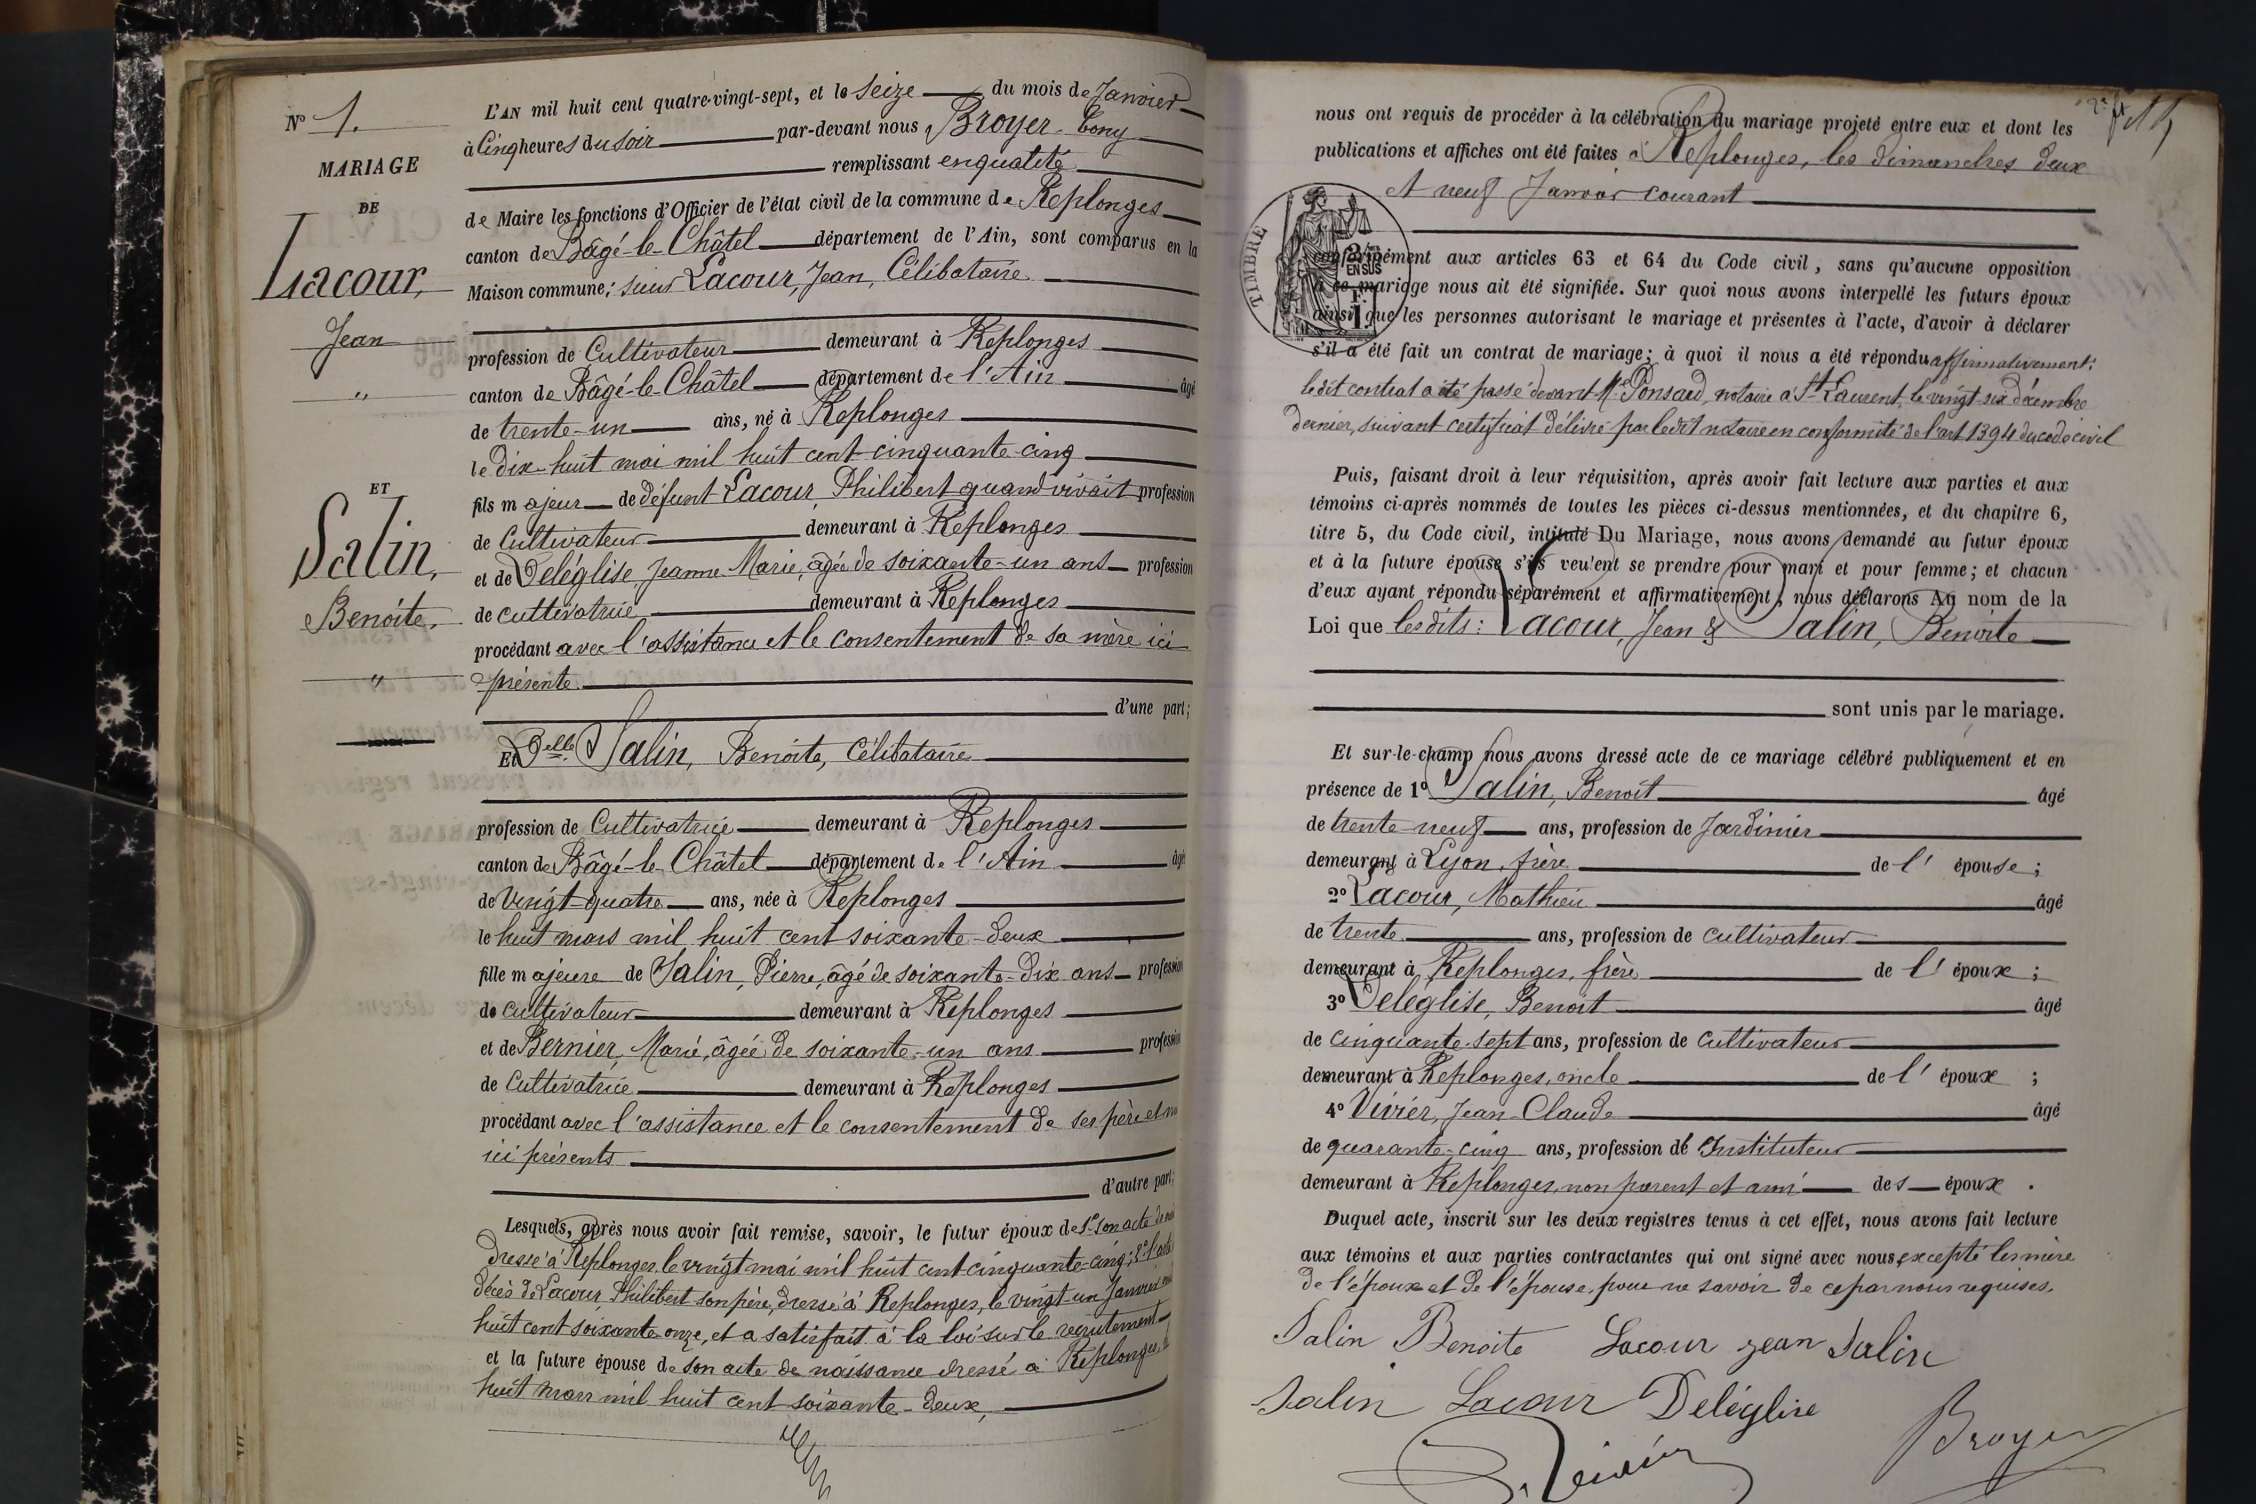 N° 1.
MARIAGE
DE
Lacour,
Jean
"
ET
Salin,
Benoite,
"
L'AN mil huit cent quatre-vingt-sept, et le seize du mois de Janvier
à Cinq heures du soir par-devant nous Broyer Tony
remplissant en qualité
de Maire les fonctions d'Officier de l'état civil de la commune de Replonges
canton de Bâgé-le-Châtel département de l'Ain, sont comparus en la
Maison commune: sieur Lacour, Jean, Célibataire
profession de Cultivateur demeurant à Replonges
canton de Bâgé-le-Châtel département de l'Ain âgé
de trente-un ans, né à Replonges
le dix-huit mai mil huit cent cinquante-cinq
fils majeur de défunt Lacour Philibert quand vivait profession
de Cultivateur demeurant à Replonges
et de Deléglise, Jeanne Marie, âgée de soixante-un ans profession
de cultivatrice demeurant à Replonges
procédant avec l'assistance et le consentement de sa mère ici
présente
d'une part;
Et Delle Salin, Benoite, Célibataire
profession de Cultivatrice demeurant à Replonges
canton de Bâgé-le-Châtel département de l'Ain âgé
de vingt-quatre ans, née à Replonges
le huit mars mil huit cent soixante-deux
fille majeure de Salin, Pierre, âgé de soixante-dix ans profession
de cultivateur demeurant à Replonges
et de Bernier, Marie, âgée de soixante-un ans profession
de Cultivatrice demeurant à Replonges
procédant avec l'assistance et le consentement de ses père et
ici présents
d'autre part;
Lesquels, après nous avoir fait remise, savoir, le futur époux de 1° son acte de
dressé à Replonges le vingt mai mil huit cent cinquante-cinq; 2° l'acte
décès de Lacour Philibert son père, dressé à Replonges, le vingt un Janvier
huit cent soixante onze, et a satisfait à la loi sur le recrutement
et la future épouse de son acte de naissance dressé à Replonges le
huit mars mil huit cent soixante-deux,
nous ont requis de procéder à la célébration du mariage projeté entre eux et dont les
publications et affiches ont été faites à Replonges, les dimanches deux
et neuf Janvier courant
TIMBRE
2/10 EN SUS
F. 1
conformément aux articles 63 et 64 du Code civil, sans qu'aucune opposition
à ce mariage nous ait été signifiée. Sur quoi nous avons interpellé les futurs époux
ainsi que les personnes autorisant le mariage et présentes à l'acte, d'avoir à déclarer
s'il a été fait un contrat de mariage; à quoi il nous a été répondu affirmativement:
ledit contrat a été passé devant Me Ponsard, notaire à St Laurent, le vingt-six décembre
dernier, suivant certificat délivré par ledit notaire en conformité de l'art 1394 du code civil
Puis, faisant droit à leur réquisition, après avoir fait lecture aux parties et aux
témoins ci-après nommés de toutes les pièces ci-dessus mentionnées, et du chapitre 6,
titre 5, du Code civil, intitulé Du Mariage, nous avons demandé au futur époux
et à la future épouse s'ils veulent se prendre pour mari et pour femme; et chacun
d'eux ayant répondu séparément et affirmativement, nous déclarons Au nom de la
Loi que lesdits: Lacour, Jean & Salin, Benoite
sont unis par le mariage.
Et sur-le-champ nous avons dressé acte de ce mariage célébré publiquement et en
présence de 1° Salin, Benoit âgé
de trente-neuf ans, profession de Jardinier
demeurant à Lyon, frère de l'épouse;
2° Lacour, Mathieu âgé
de trente ans, profession de cultivateur
demeurant à Replonges, frère de l'époux;
3° Deléglise, Benoit âgé
de cinquante-sept ans, profession de Cultivateur
demeurant à Replonges, oncle de l'époux;
4° Vivier, Jean-Claude âgé
de quarante-cinq ans, profession de Instituteur
demeurant à Replonges, non parent et ami des époux.
Duquel acte, inscrit sur les deux registres tenus à cet effet, nous avons fait lecture
aux témoins et aux parties contractantes qui ont signé avec nous, excepté les mère
de l'époux et de l'épouse, pour ne savoir de ce par nous requises.
Salin Benoite Lacour jean Salin
Salin Lacour Deléglise
Vivier Broyer